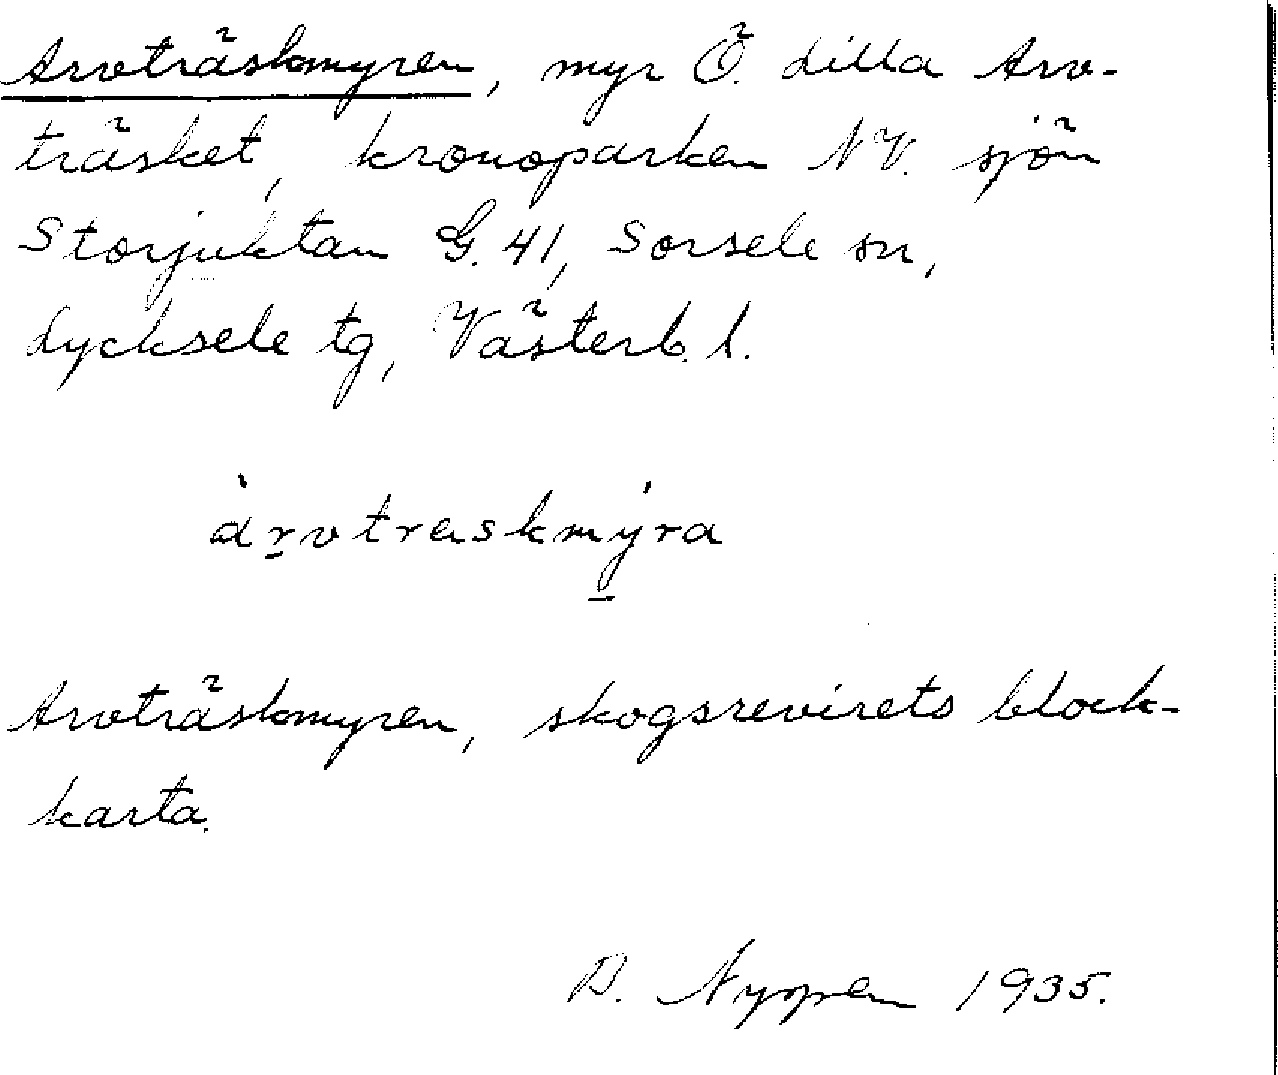 Arvträskmyren, myr Ö. Lilla Arv-
träsket, kronoparken NV. sjön
Storjuktan G. 41, Sorsele sn,
Lycksele tg, Västerb. l.
àrvtraskmýra
Arvträskmyren, skogsrevirets block-
karta.
D. Nyppen 1935.